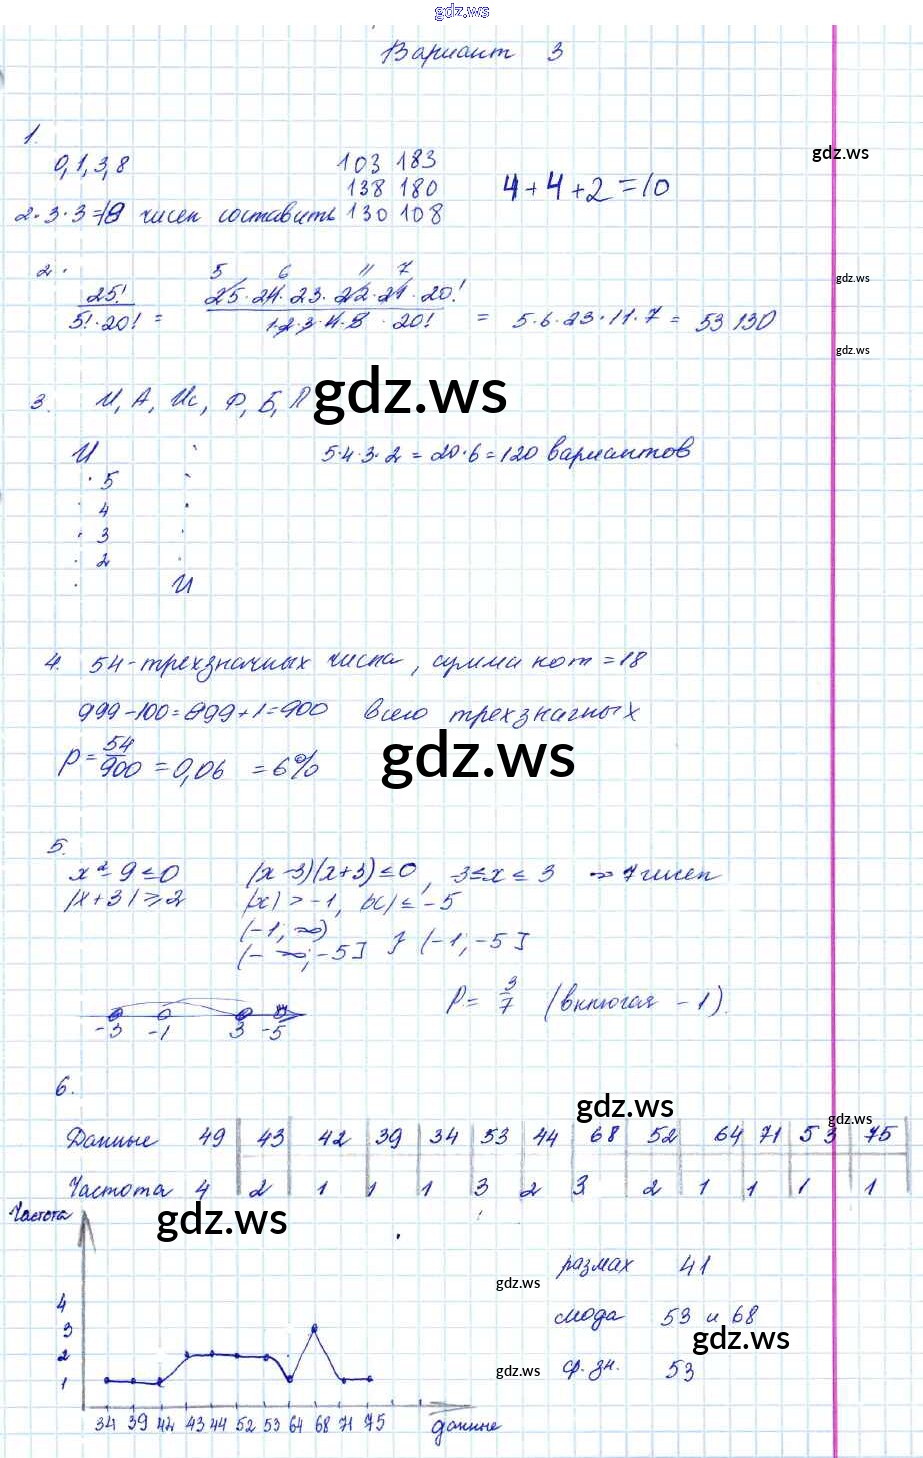 gdz.ws
Вариант 3
1.
0,1,3,8 103 183
gdz.ws
138 180 4+4+2=10
2·3·3=18 чисел составить 130 108
2.
25! / 5!·20! = 25·24·23·22·21·20! / 1·2·3·4·5·20! = 5·6·23·11·7 = 53 130
5 6 11 7
gdz.ws
gdz.ws
3. И, А, Ис, Ф, Б, Л
gdz.ws
И 5·4·3·2 = 20·6 = 120 вариантов
5
4
3
2
И
4. 54 - трехзначных числа, сумма кот = 18
999-100=899+1=900 всего трехзначных
P = 54/900 = 0,06 = 6%
gdz.ws
5.
x²-9≤0 (x-3)(x+3)≤0, 3≤x≤3 → 7 чисел
|x+3|≥2 |x|>-1, |x|≤-5
(-1; ∞)
(-∞; -5] } (-1; -5]
P = 3/7 (включая -1).
-3 -1 3 -5
6.
gdz.ws
gdz.ws
Данные 49 43 42 39 34 53 44 68 52 64 71 53 75
Частота 4 2 1 1 1 3 2 3 2 1 1 1 1
gdz.ws
Частота
размах 41
gdz.ws
4
мода 53 и 68
3
gdz.ws
2
ср. зн. 53
gdz.ws
1
34 39 42 43 44 52 53 64 68 71 75 данные